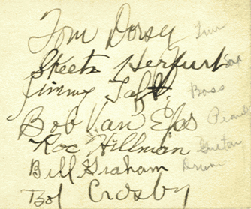 Tom Dorsey
Skeets Herfurt
Jimmy Taft Bass
Bob Van Eps Piano
Roc Hillman Guitar
Bill Graham
Bob Crosby